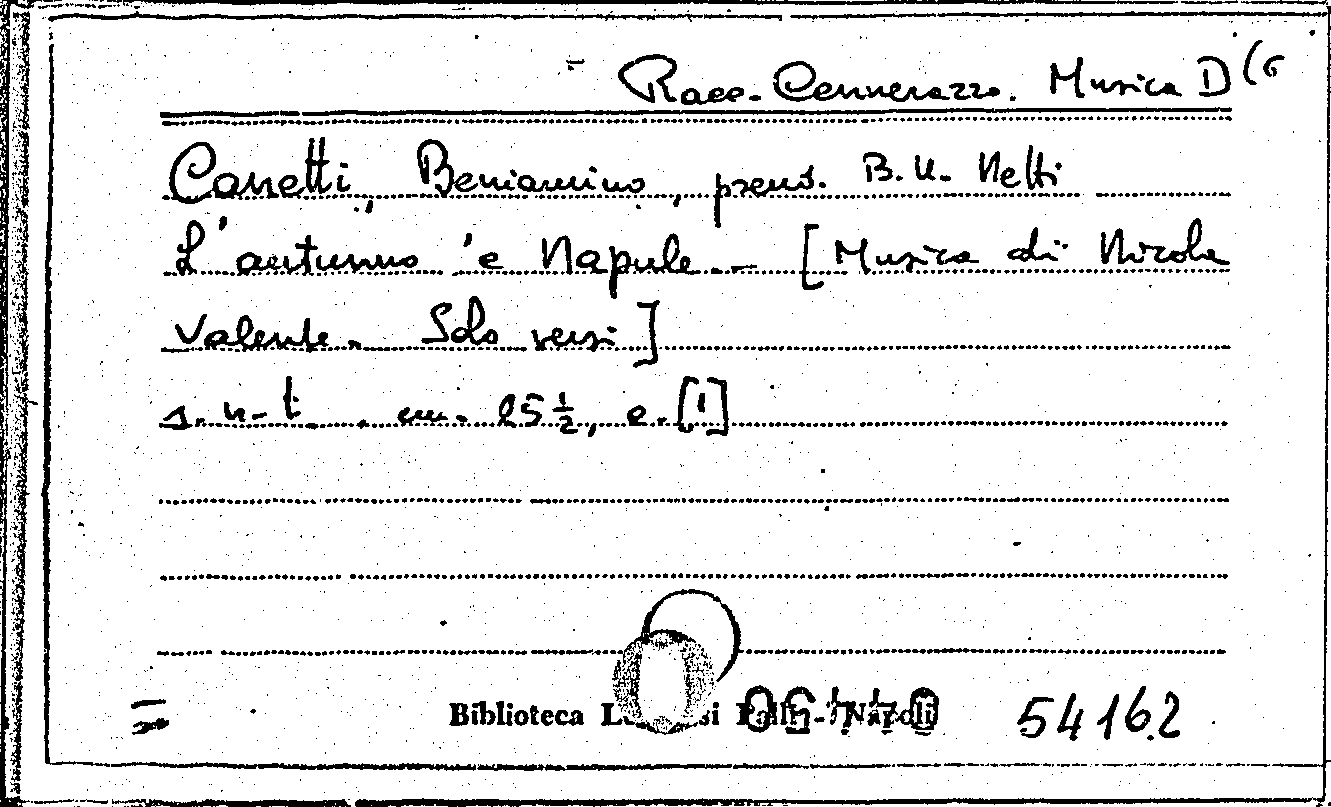 Racc. Cennerazzo. Musica D(6
Canetti, Beniamino, pseud. B. U. Netti
L'autunno 'e Napule. - [Musica di Nicola
Valente. Solo versi]
s. n. t. cm. 25 ½, c. [1]
Biblioteca Lucchesi Palli - Napoli 54162